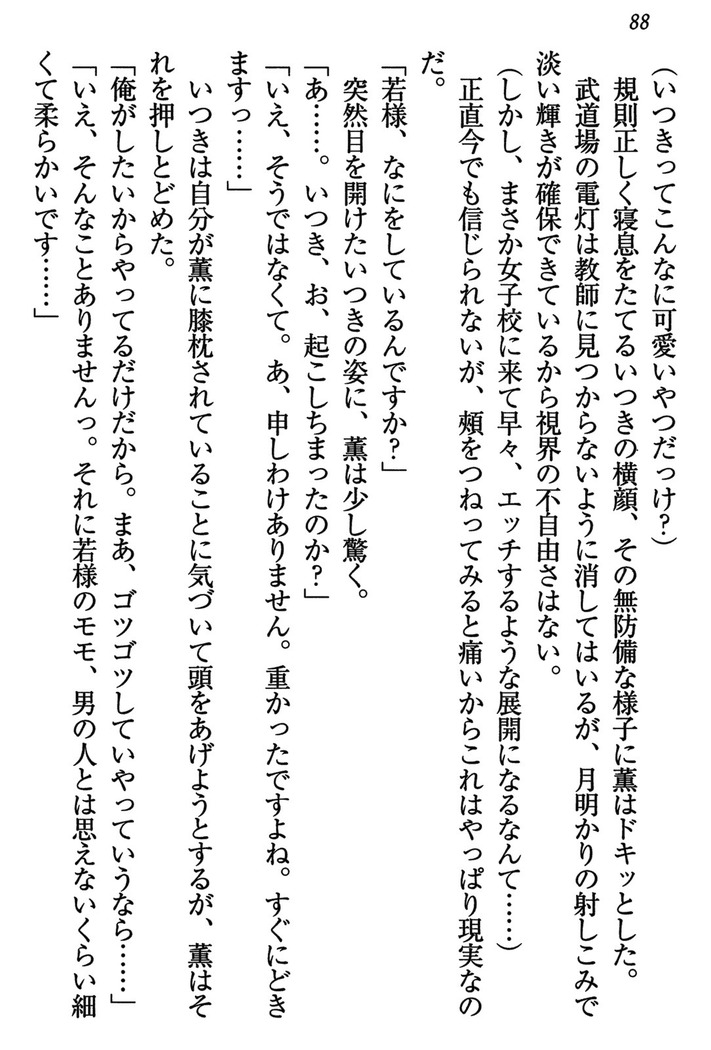 88
(いつきってこんなに可愛いやつだっけ?)
規則正しく寝息をたてるいつきの横顔、その無防備な様子に薫はドキッとした。
武道場の電灯は教師に見つからないように消してはいるが、月明かりの射しこみで
淡い輝きが確保できているから視界の不自由さはない。
(しかし、まさか女子校に来て早々、エッチするような展開になるなんて……)
正直今でも信じられないが、頰をつねってみると痛いからこれはやっぱり現実なの
だ。
「若様、なにをしているんですか?」
突然目を開けたいつきの姿に、薫は少し驚く。
「あ……。いつき、お、起こしちまったのか?」
「いえ、そうではなくて。あ、申しわけありません。重かったですよね。すぐにどき
ますっ……」
いつきは自分が薫に膝枕されていることに気づいて頭をあげようとするが、薫はそ
れを押しとどめた。
「俺がしたいからやってるだけだから。まあ、ゴツゴツしていやっていうなら……」
「いえ、そんなことありませんっ。それに若様のモモ、男の人とは思えないくらい細
くて柔らかいです……」